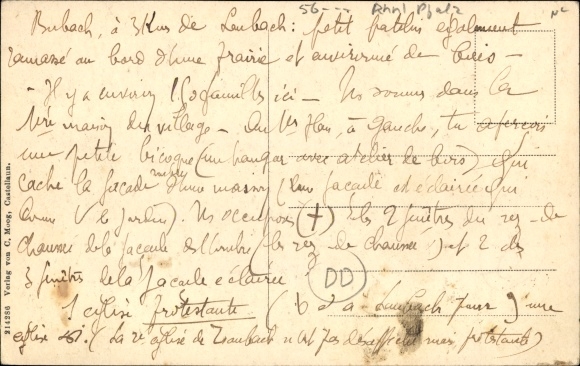 56---
Rhnl. Pfalz
Bubach, à 3 Kms de Laubach : petit patelin également
ramassé au bord d'une prairie et environné de bois —
- Il y a environ familles ici - Ns sommes dans la
1ère maison du village - Au 1er plan, à gauche, tu aperçois
une petite bicoque (un hangar avec atelier de bois) qui
cache la façade d'une maison ( façade est éclairée qui
le jardin). Ns occupons (+) les 2 fenêtres du rez-de
chaussée de la façade de l'ombre (les rez-de chaussée) et 2 des
3 fenêtres de la façade éclairée (DD)
1 église protestante ( à Laubach pour ) une
église (La église de n'est pas mais protestante)
214286 Verlag von C. Moog, Castellaun.